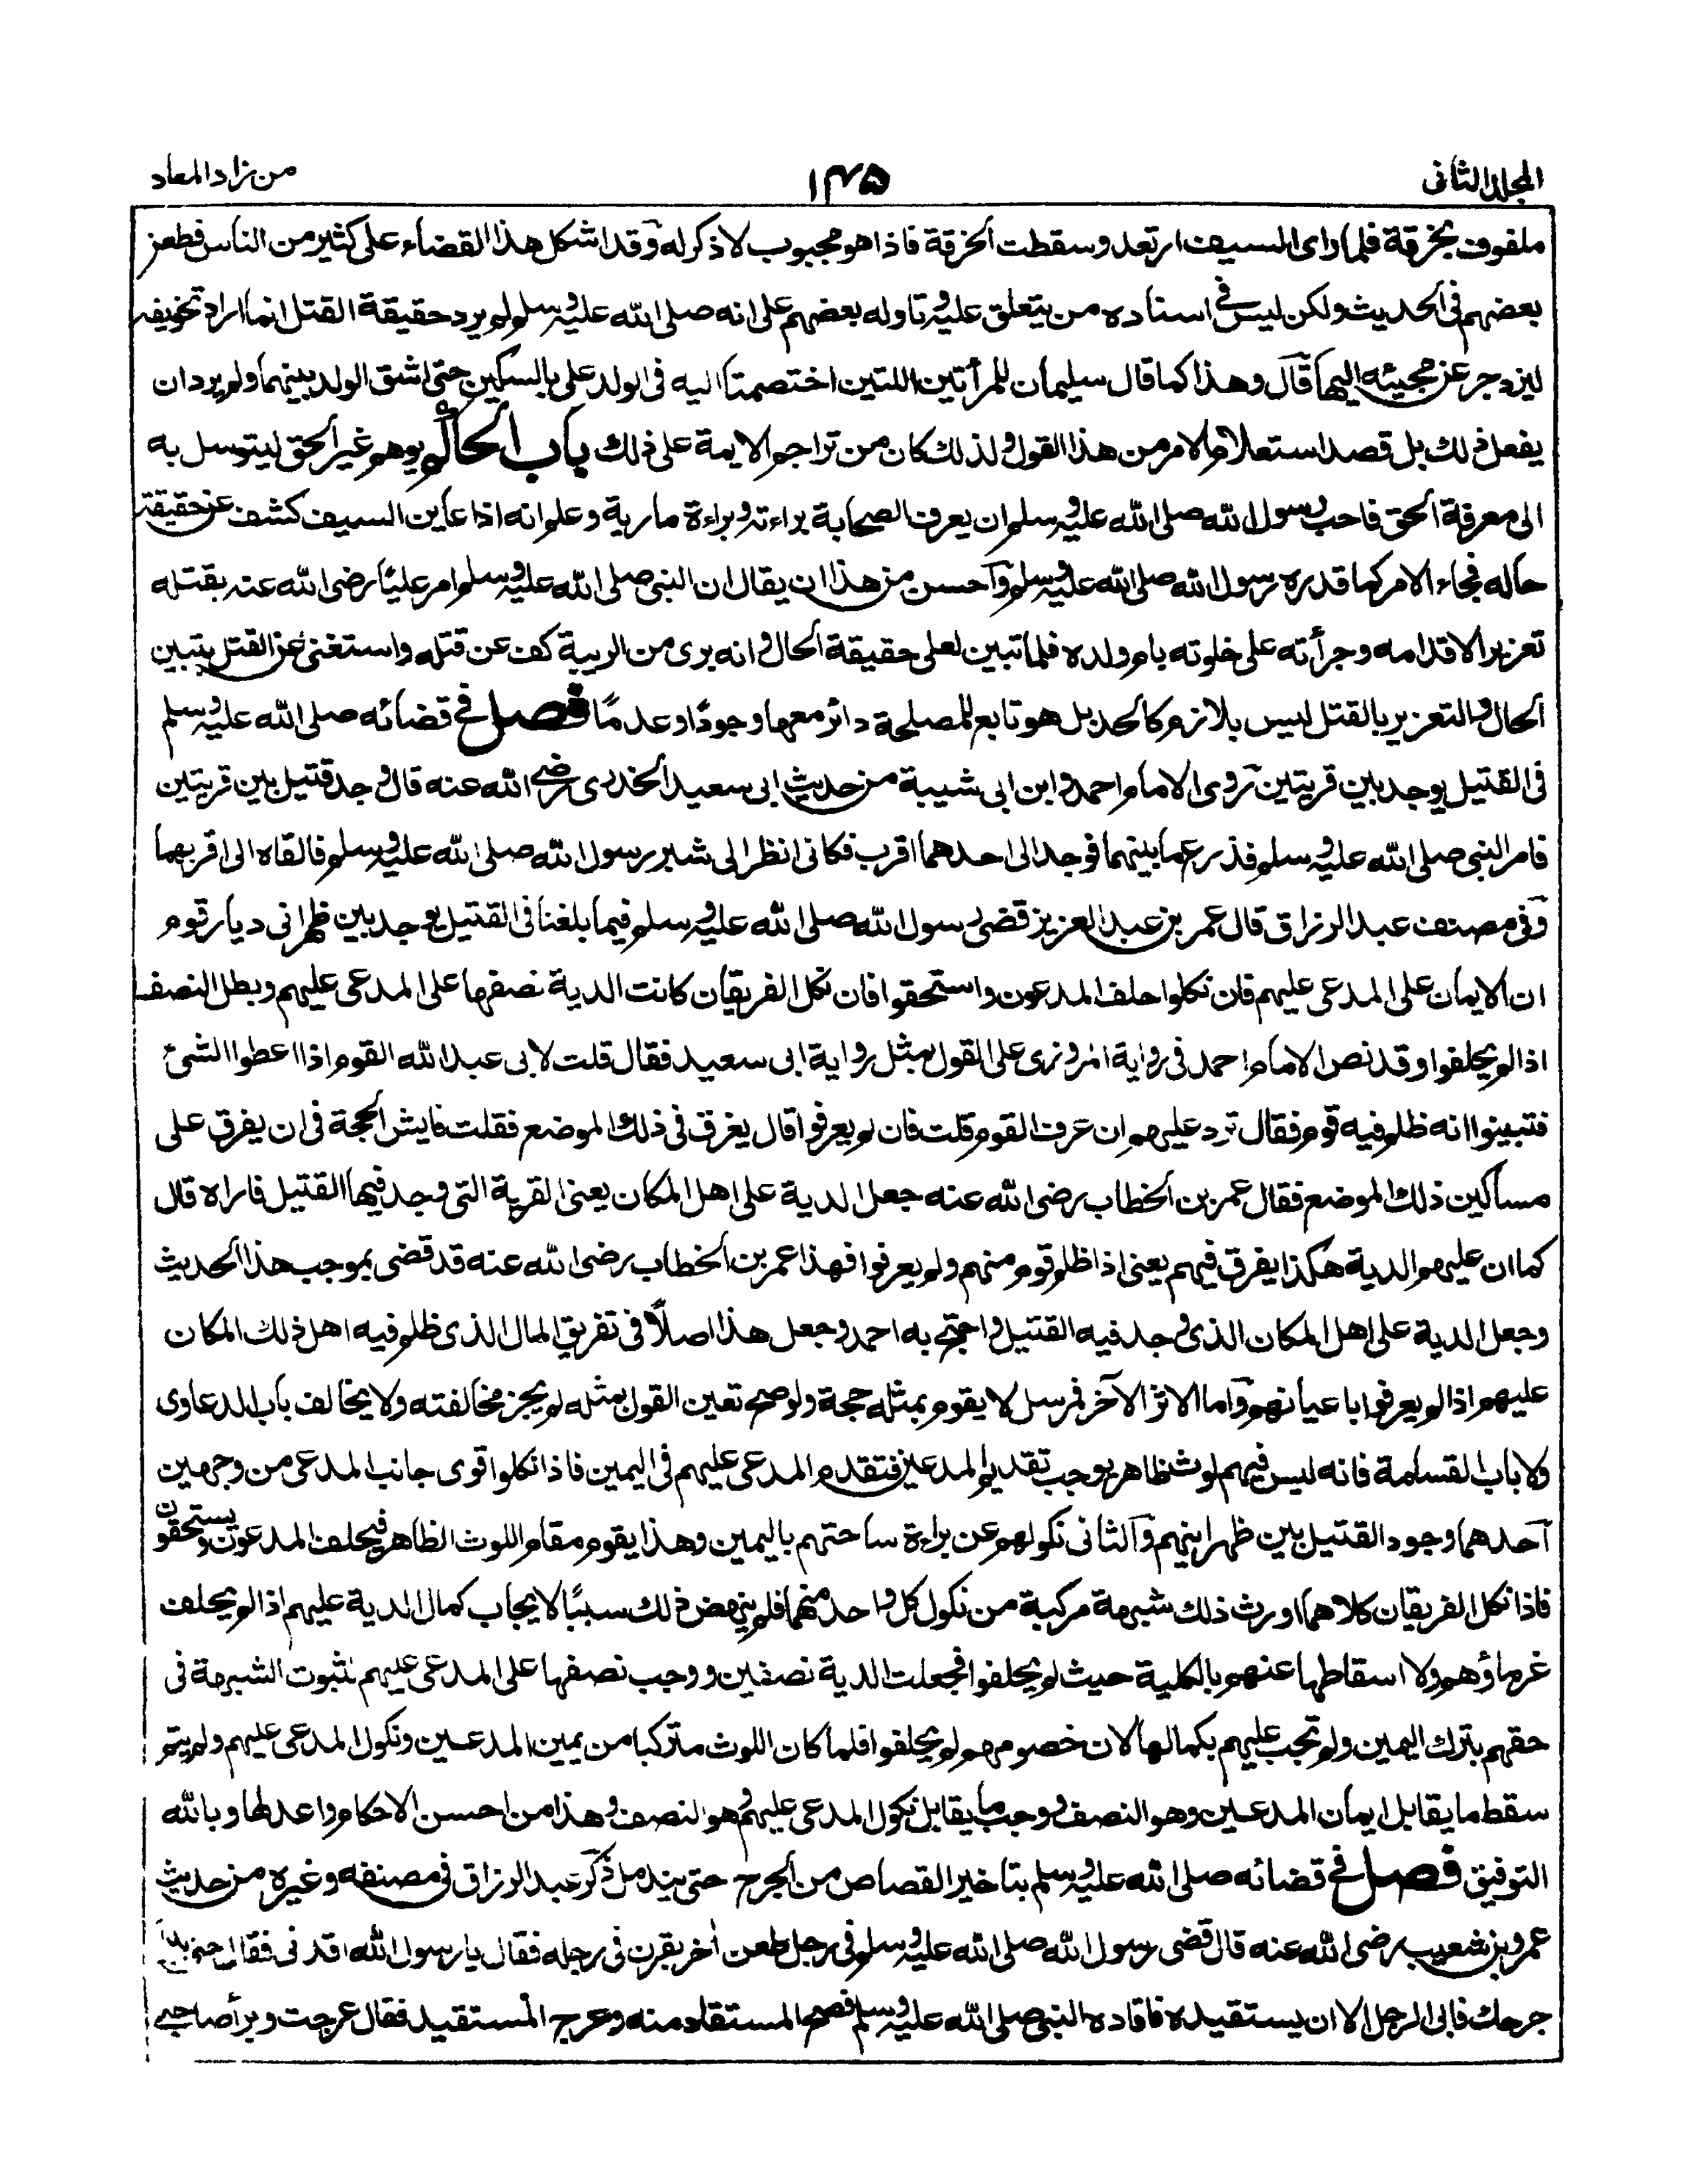 المجلد الثانی
١٤٥
من زاد المعاد
ملفوف بخرقة فلما رای السیف ارتعد وسقطت الخرقة فاذا هو مجبوب لا ذکر له وقد اشکل هذا القضاء علی کثیر من الناس فطعن
بعضهم فی الحدیث ولکن لیس فی اسناده من یتعلق علیه وتاوله بعضهم علی انه صلی الله علیه وسلم لم یرد حقیقة القتل انما اراد تخویفه
لیزدجر عن مجیئه الیها قال وهذا کما قال سلیمان للمرأتین اللتین اختصمتا الیه فی الولد علی بالسکین حتی اشق الولد بینهما ولم یرد ان
یفعل ذلک بل قصد استعلام الامر من هذا القول ولذلک کان من تراجم الایمة علی ذلک باب الحاکم یوهم غیر الحق لیتوسل به
الی معرفة الحق فاحب رسول الله صلی الله علیه وسلم ان یعرف الصحابة براءته وبراءة ماریة وعلم انه اذا عاین السیف کشف عن حقیقة
حاله فجاء الامر کما قدره رسول الله صلی الله علیه وسلم واحسن من هذا ان یقال ان النبی صلی الله علیه وسلم امر علیًا رضی الله عنه بقتله
تعزیرا لاقدامه وجرأته علی خلوته بام ولده فلما تبین لعلی حقیقة الحال وانه بری من الریبة کف عن قتله واستغنی عن القتل بتبین
الحال والتعزیر بالقتل لیس بلازم کالحد بل هو تابع للمصلحة دائر معها وجودًا وعدمًا فصل فی قضائه صلی الله علیه وسلم
فی القتیل یوجد بین قریتین روی الامام احمد وابن ابی شیبة من حدیث ابی سعید الخدری رضی الله عنه قال وجد قتیل بین قریتین
فامر النبی صلی الله علیه وسلم فذرع ما بینهما فوجد الی احدهما اقرب فکانی انظر الی شبر رسول الله صلی الله علیه وسلم فالقاه الی اقربهما
وفی مصنف عبد الرزاق قال عمر بن عبد العزیز قضی رسول الله صلی الله علیه وسلم فیما بلغنا فی القتیل یوجد بین ظهرانی دیار قوم
ان الایمان علی المدعی علیهم فان نکلوا حلف المدعون واستحقوا فان نکل الفریقان کانت الدیة نصفها علی المدعی علیهم وبطل النصف
اذا لم یحلفوا وقد نص الامام احمد فی روایة المروزی علی القول بمثل روایة ابی سعید فقال قلت لابی عبد الله القوم اذا اعطوا الشئ
فتبینوا انه ظلم فیه قوم فقال ترد علیهم ان عرف القوم قلت فان لم یعرفوا قال یفرق فی ذلک الموضع فقلت فایش الحجة فی ان یفرق علی
مساکین ذلک الموضع فقال عمر بن الخطاب رضی الله عنه جعل الدیة علی اهل المکان یعنی القریة التی وجد فیها القتیل فاراه قال
کما ان علیهم الدیة هکذا یفرق فیهم یعنی اذا ظلم قوم منهم ولم یعرفوا فهذا عمر بن الخطاب رضی الله عنه قد قضی بموجب هذا الحدیث
وجعل الدیة علی اهل المکان الذی وجد فیه القتیل واحتج به احمد وجعل هذا اصلًا فی تفریق المال الذی ظلم فیه اهل ذلک المکان
علیهم اذا لم یعرفوا باعیانهم واما الاثر الآخر فمرسل لا یقوم بمثله حجة ولو صح تعین القول بمثله لم یجز مخالفته ولا یخالف باب الدعاوی
ولا باب القسامة فانه لیس فیهم لوث ظاهر یوجب تقدیم المدعین فتقدم المدعی علیهم فی الیمین فاذا نکلوا قوی جانب المدعی من وجهین
احدهما وجود القتیل بین ظهرانیهم والثانی نکولهم عن براءة ساحتهم بالیمین وهذا یقوم مقام اللوث الظاهر فیحلف المدعون ویستحقون
فاذا نکل الفریقان کلاهما اورث ذلک شبهة مرکبة من نکول کل واحد منهما فلم ینهض ذلک سببًا لایجاب کمال الدیة علیهم اذا لم یحلف
غرماؤهم ولا اسقاطها عنهم بالکلیة حیث لم یحلفوا فجعلت الدیة نصفین ووجب نصفها علی المدعی علیهم لثبوت الشبهة فی
حقهم بترک الیمین ولم تجب علیهم بکمالها لان خصومهم لم یحلفوا فلما کان اللوث مترکبا من یمین المدعین ونکول المدعی علیهم ولم یتم
سقط ما یقابل ایمان المدعین وهو النصف ووجب ما یقابل نکول المدعی علیهم وهو النصف وهذا من احسن الاحکام واعدلها وبالله
التوفیق فصل فی قضائه صلی الله علیه وسلم بتاخیر القصاص من الجرح حتی یندمل ذکر عبد الرزاق فی مصنفه وغیره من حدیث
عمرو بن شعیب رضی الله عنه قال قضی رسول الله صلی الله علیه وسلم فی رجل طعن آخر بقرن فی رجله فقال یا رسول الله اقدنی فقال حتی
جرحک فابی الرجل الا ان یستقیده فاقاده النبی صلی الله علیه وسلم فصح المستقاد منه وعرج المستقید فقال عرجت وبرأ صاحبی